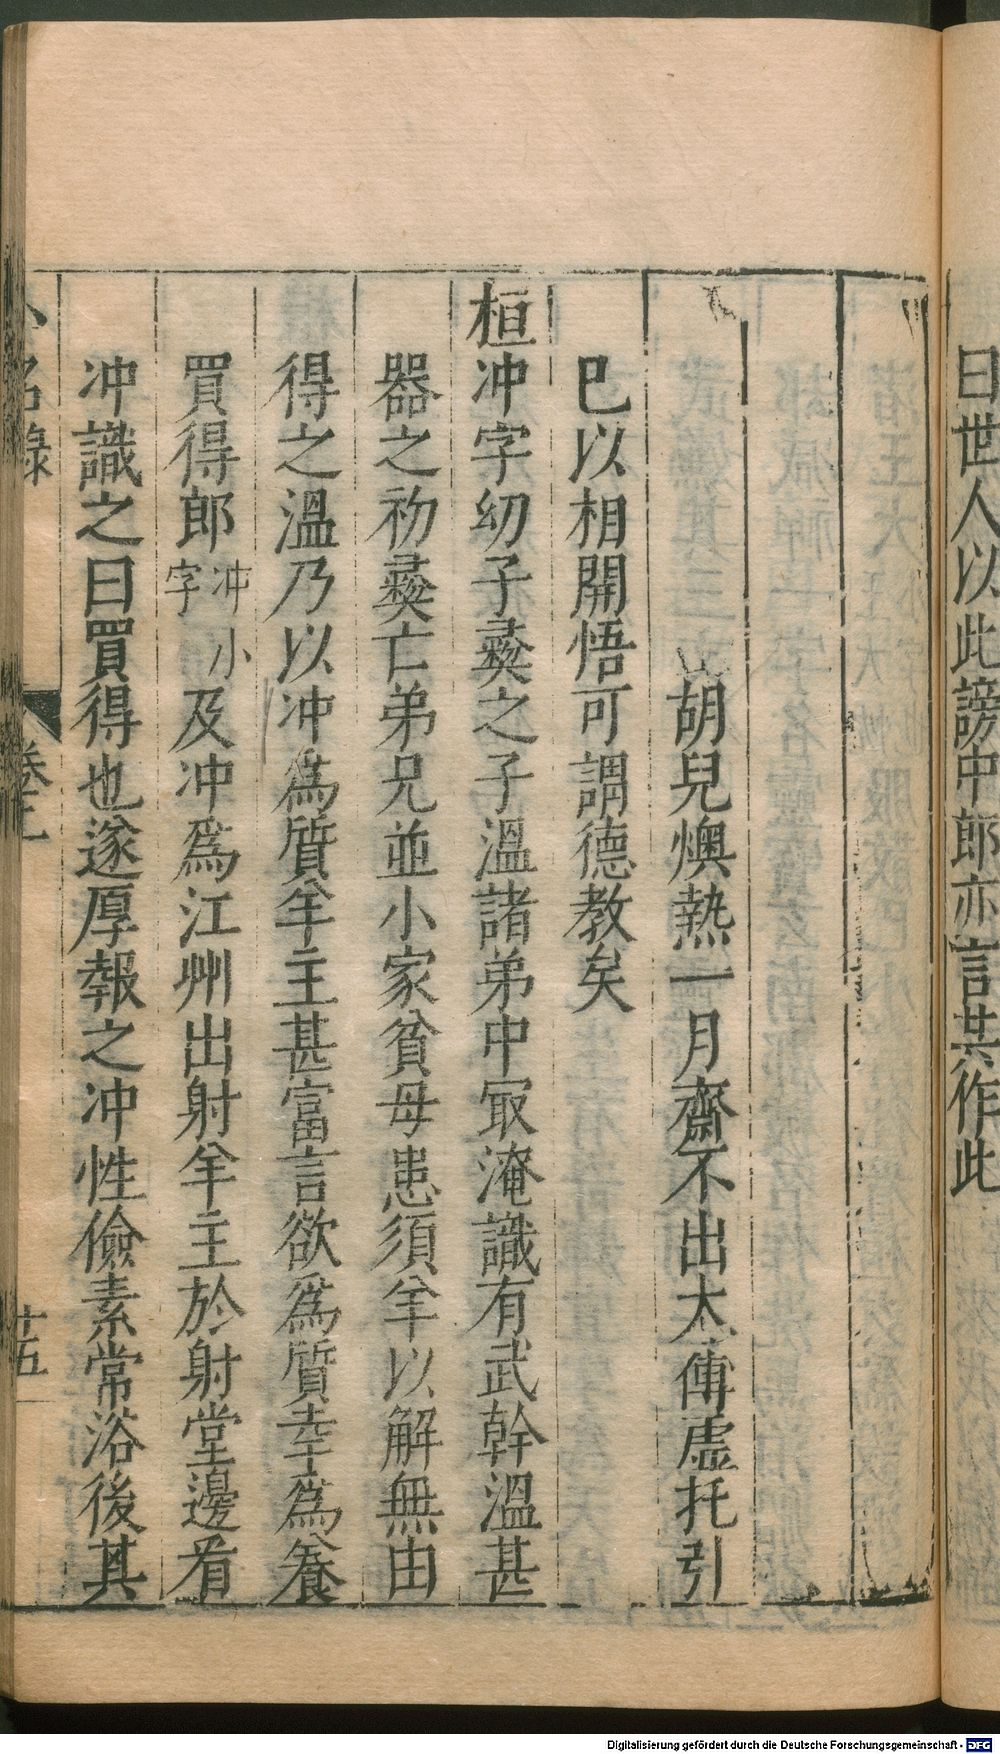 曰世人以此謗中郎亦言共作此
胡兒燠熱一月齋不出太傅虛托引
巳以相開悟可謂德教矣
桓冲字㓜子彝之子溫諸弟中冣淹識有武幹溫甚
器之初彝亡弟兄並小家貧母患須羊以解無由
得之溫乃以冲爲質羊主甚富言欲爲質幸爲養
買得郎冲小字及冲爲江州出射羊主於射堂邊看
冲識之曰買得也遂厚報之冲性儉素常浴後其
小名錄 卷上 十五
Digitalisierung gefördert durch die Deutsche Forschungsgemeinschaft - DFG